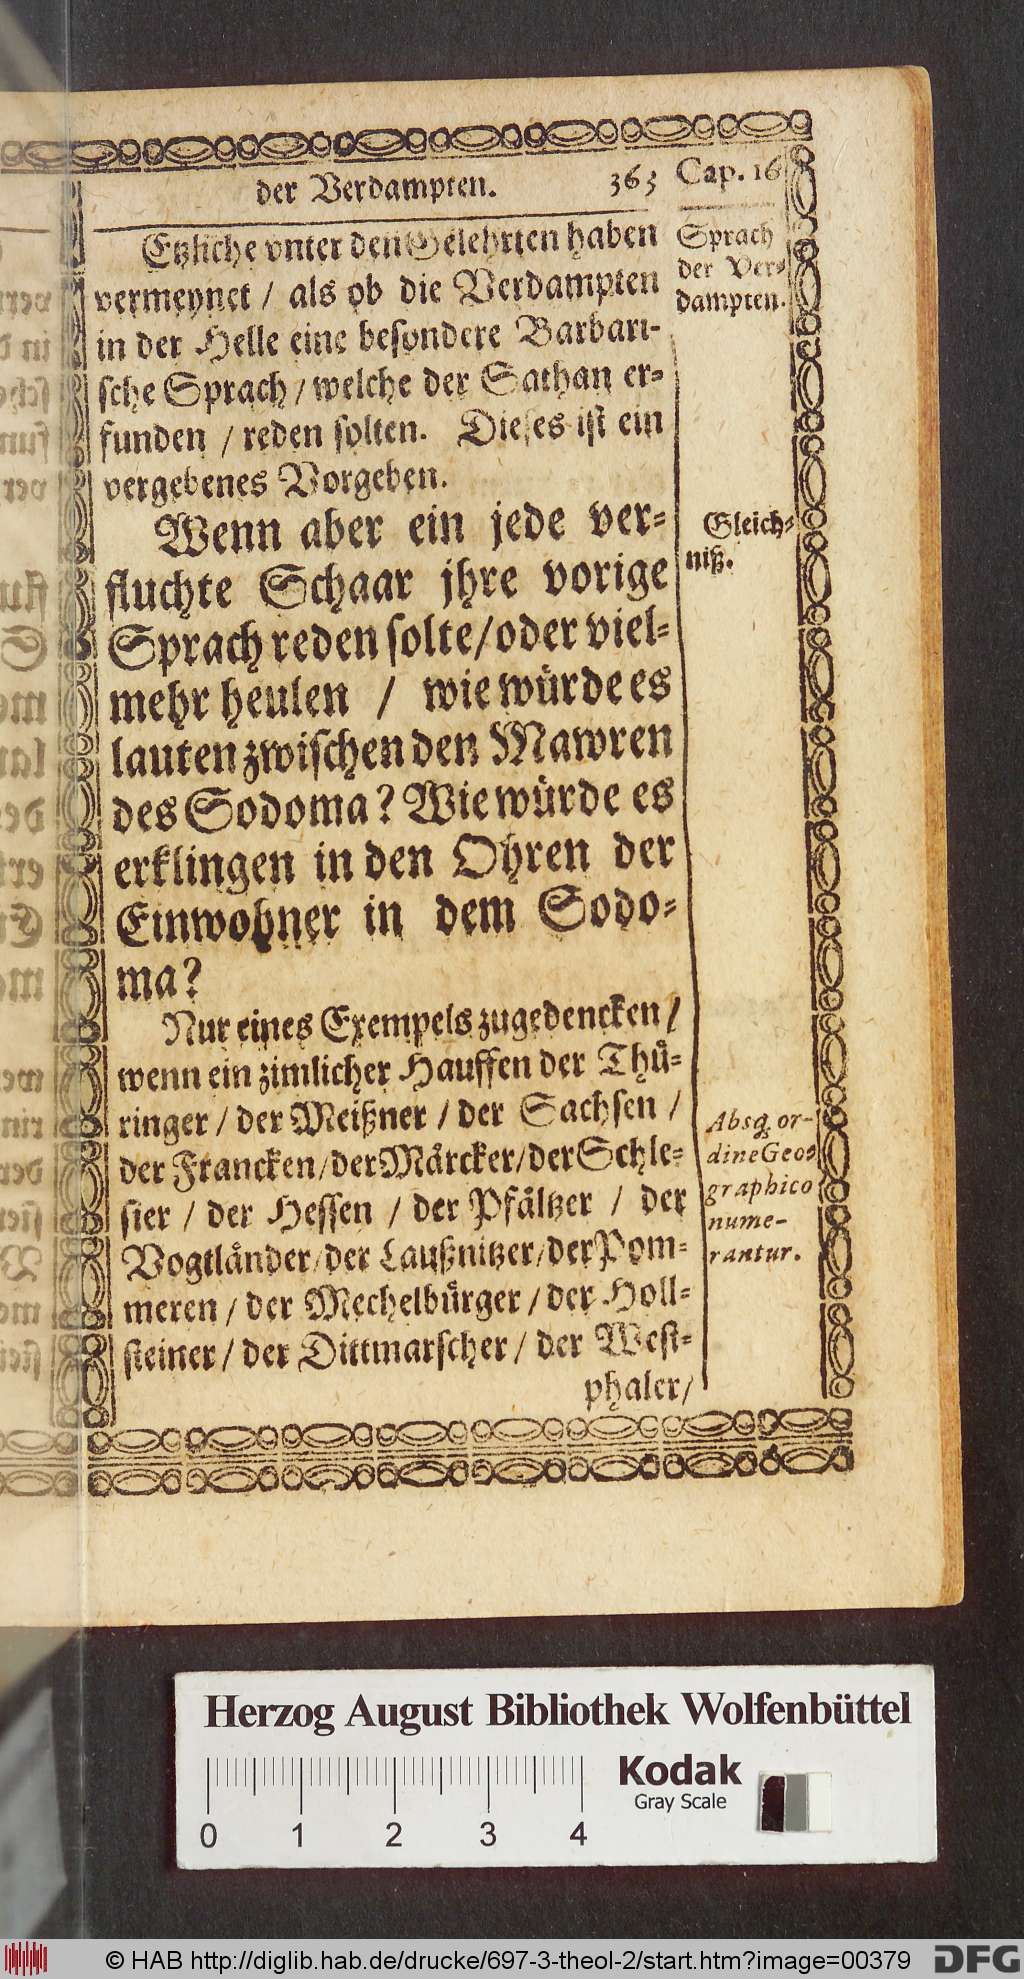 der Verdampten. 363 Cap. 16
Etzliche vnter den Gelehrten haben
vermeynet / als ob die Verdampten
in der Helle eine besondere Barbari-
sche Sprach / welche der Sathan er-
funden / reden solten. Dieses ist ein
vergebenes Vorgeben.
Sprach
der Ver-
dampten.
Wenn aber ein jede ver-
fluchte Schaar jhre vorige
Sprach reden solte / oder viel-
mehr heulen / wie würde es
lauten zwischen den Mawren
des Sodoma? Wie würde es
erklingen in den Ohren der
Einwohner in dem Sodo-
ma?
Gleich-
niß.
Nur eines Exempels zugedencken /
wenn ein zimlicher Hauffen der Thü-
ringer / der Meißner / der Sachsen /
der Francken / der Märcker / der Schle-
sier / der Hessen / der Pfältzer / der
Vogtländer / der Laußnitzer / der Pom-
meren / der Mechelbürger / der Holl-
steiner / der Dittmarscher / der West-
phaler /
Absq; or-
dine Geo-
graphico
nume-
rantur.
Herzog August Bibliothek Wolfenbüttel
0 1 2 3 4
Kodak
Gray Scale
© HAB http://diglib.hab.de/drucke/697-3-theol-2/start.htm?image=00379
DFG